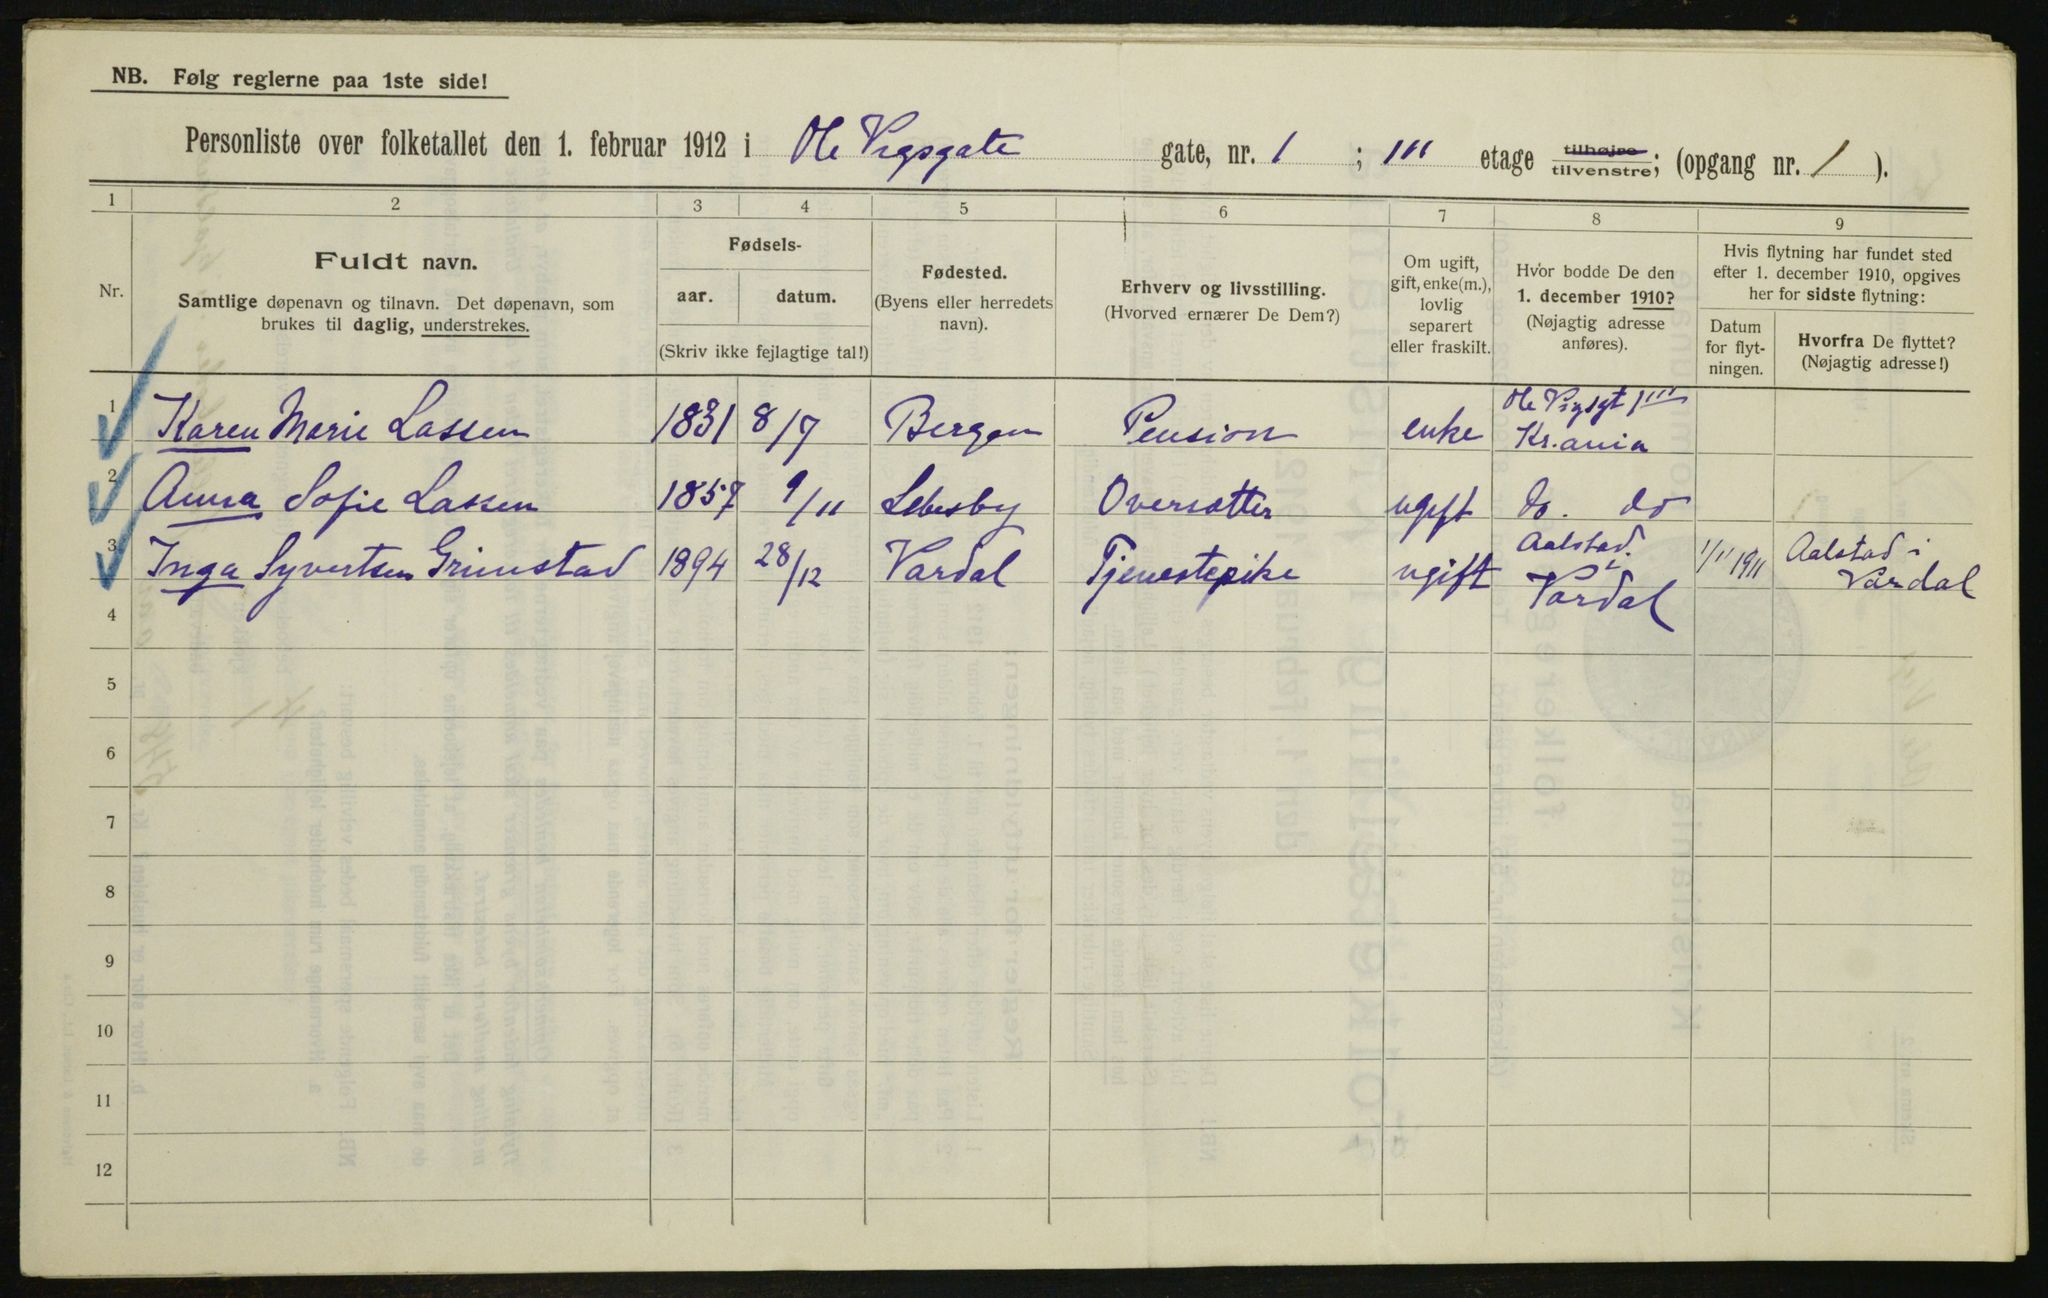 NB. Følg reglerne paa 1ste side!
Personliste over folketallet den 1. februar 1912 i Ole Vigsgate gate, nr. 1 ; III etage tilhøjre tilvenstre; (opgang nr. 1 ).
1 2 3 4 5 6 7 8 9
Nr.
Fuldt navn.
Samtlige døpenavn og tilnavn. Det døpenavn, som
brukes til daglig, understrekes.
Fødsels-
aar. datum.
(Skriv ikke fejlagtige tal!)
Fødested.
(Byens eller herredets
navn).
Erhverv og livsstilling.
(Hvorved ernærer De Dem?)
Om ugift,
gift, enke(m.),
lovlig
separert
eller fraskilt.
Hvor bodde De den
1. december 1910?
(Nøjagtig adresse
anføres).
Hvis flytning har fundet sted
efter 1. december 1910, opgives
her for sidste flytning:
Datum
for flyt-
ningen.
Hvorfra De flyttet?
(Nøjagtig adresse!)
1 Karen Marie Lassen 1831 8/7 Bergen Pension enke Ole Vigsgt 1 III
Kr.ania
2 Anna Sofie Lassen 1857 9/11 Lebesby Oversætter ugift do. do
3 Inga Syvertsen Grimstad 1894 28/12 Vardal Tjenestepike ugift Aalstad i
Vardal 1/11 1911 Aalstad i
Vardal
4
5
6
7
8
9
10
11
12